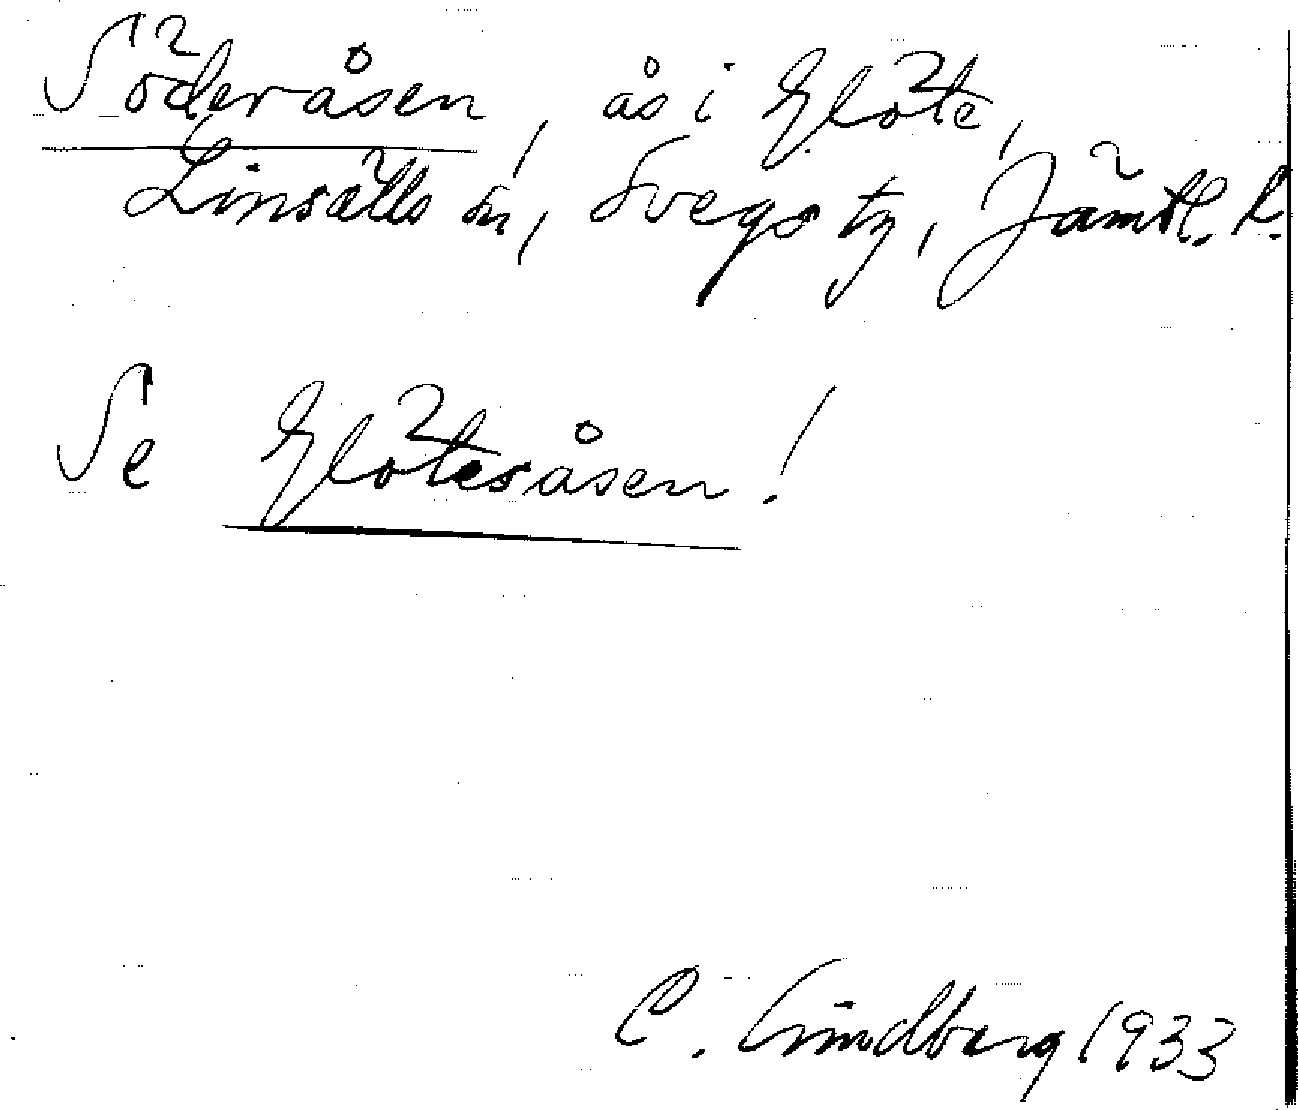 Söderåsen, ås i Glöte,
Linsälls sn, Svegs tg, Jämtl. l.
Se Glötesåsen!
C. Lindberg 1933